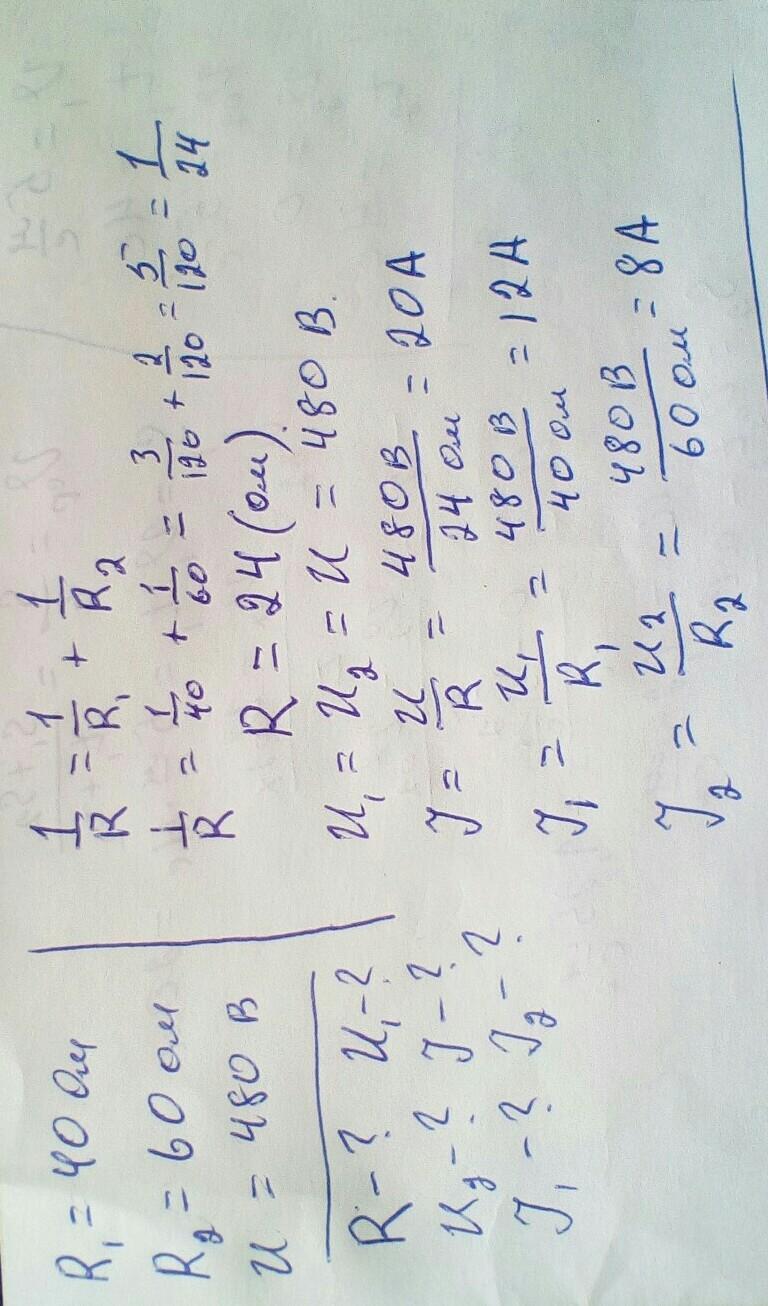 R₁ = 40 Ом
R₂ = 60 Ом
U = 480 В
R - ? U₁ - ?
U₂ - ? J - ?
J₁ - ? J₂ - ?
1/R = 1/R₁ + 1/R₂
1/R = 1/40 + 1/60 = 3/120 + 2/120 = 5/120 = 1/24
R = 24 (Ом).
U₁ = U₂ = U = 480 В.
J = U/R = 480 В/24 Ом = 20 А
J₁ = U₁/R₁ = 480 В/40 Ом = 12 А
J₂ = U₂/R₂ = 480 В/60 Ом = 8 А